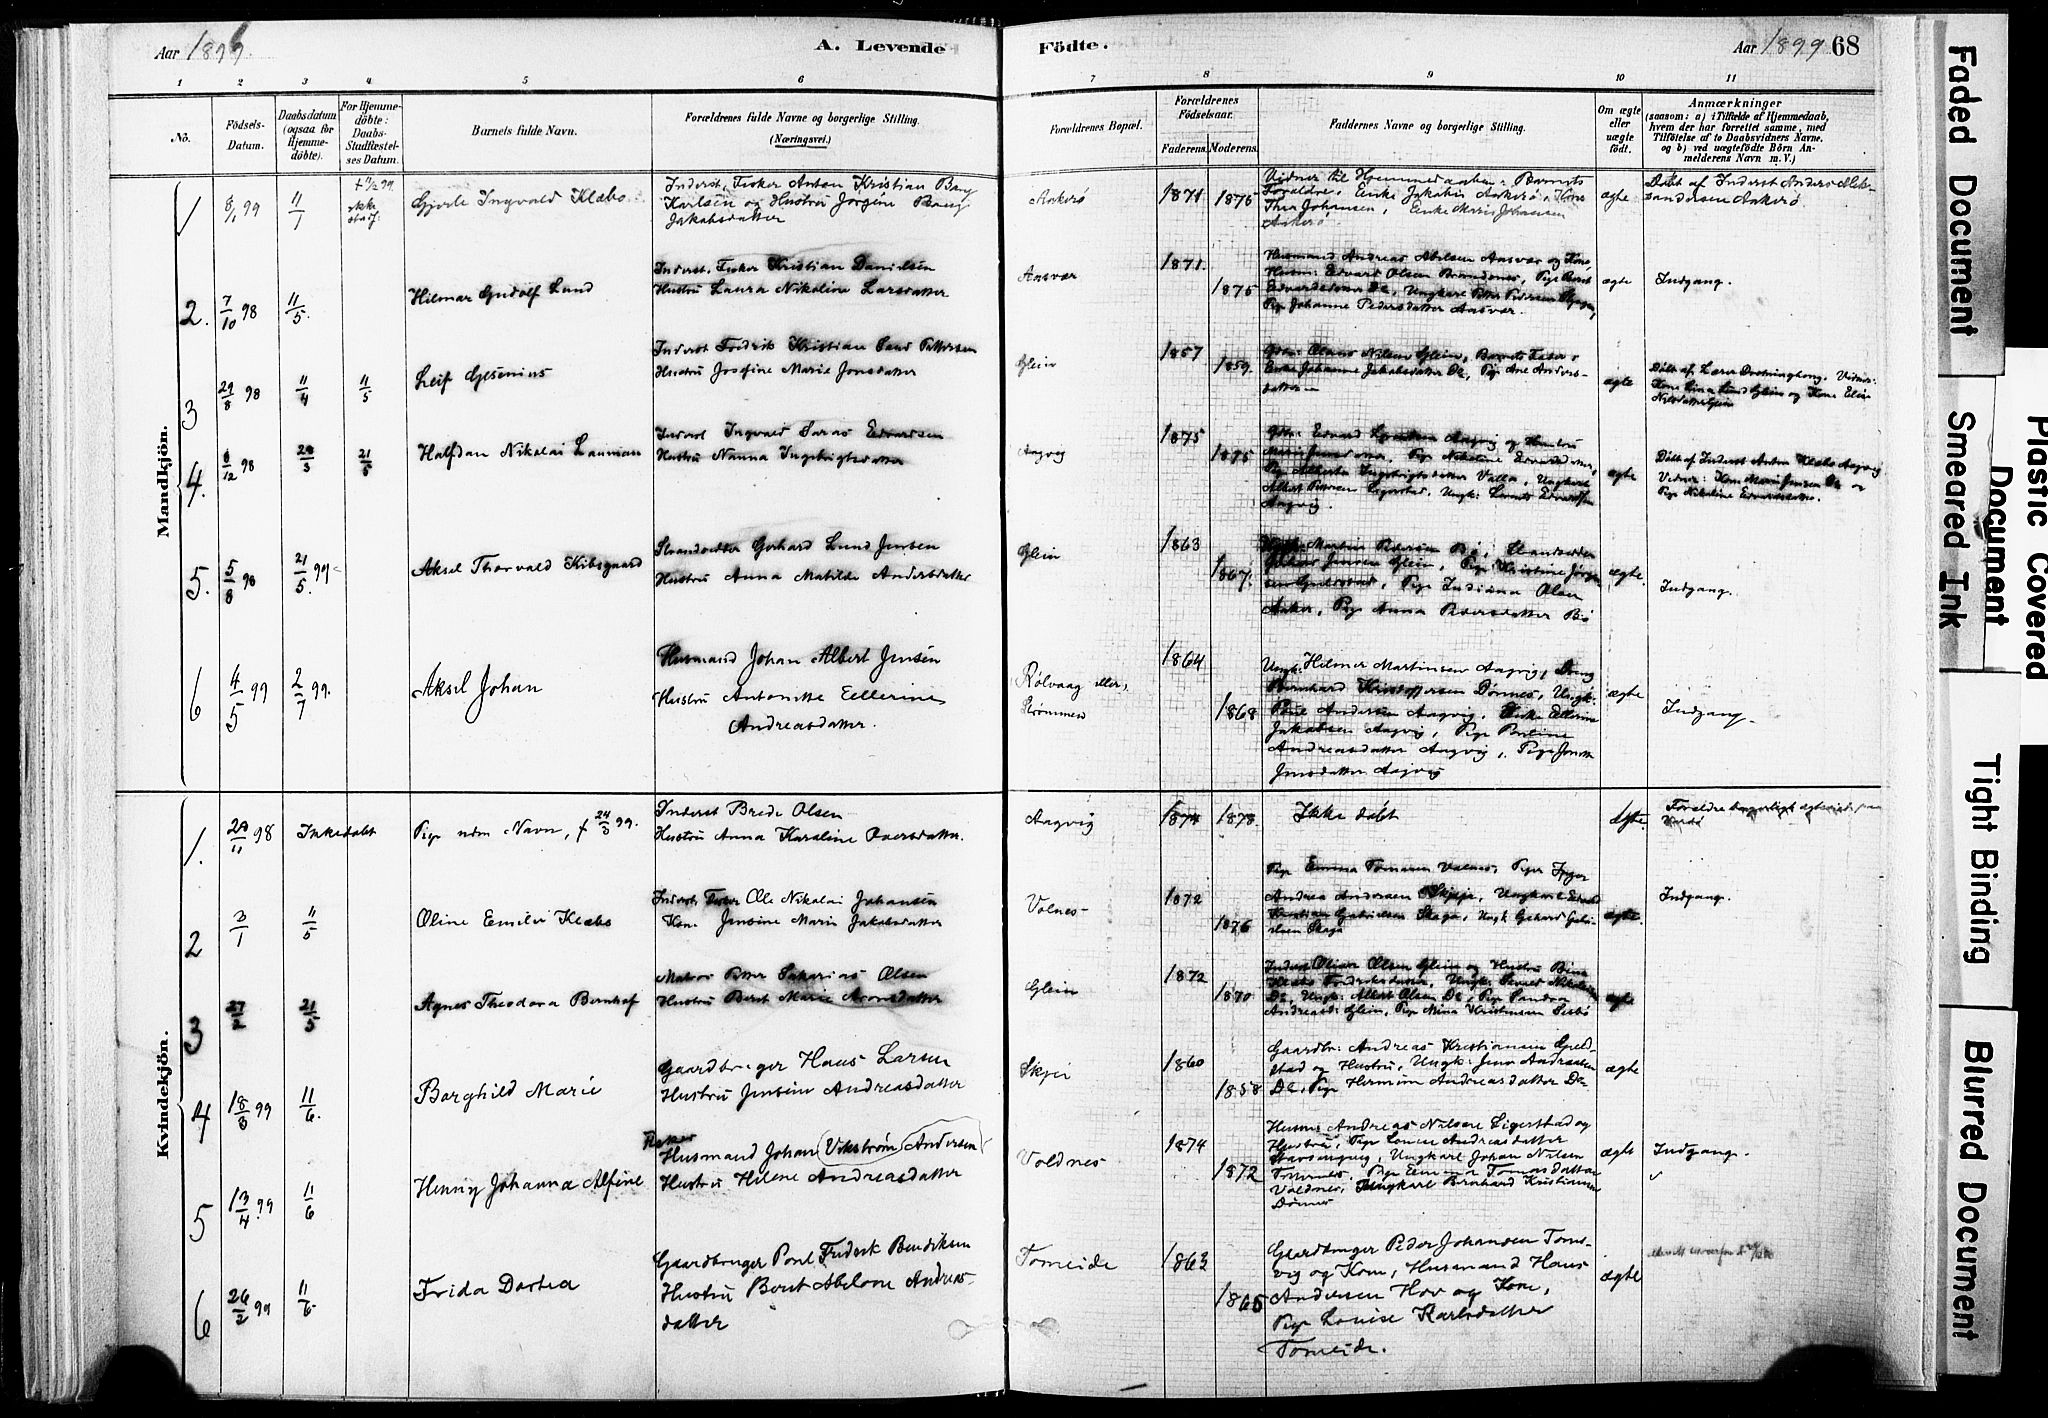 Aar 1899.
A. Levende
Födte.
Aar 1899 68
1 2 3 4 5 6 7 8 9 10 11
No.
Födsels-Datum.
Daabsdatum (ogsaa for Hjemmedöbte).
For Hjemmedöbte: Daabs-Stadfæstelses Datum.
Barnets fulde Navn.
Forældrenes fulde Navne og borgerlige Stilling.
(Næringsvei.)
Forældrenes Bopæl.
Forældrenes Födselsaar.
Faderens. Moderens.
Faddernes Navne og borgerlige Stilling.
Om ægte eller uægte födt.
Anmærkninger
(saasom: a) i Tilfælde af Hjemmedaab, hvem der har forrettet samme, med Tilföielse af to Daabsvidners Navne. og b) ved uægtefödte Börn Anmelderens Navn m. V.)
Mandkjön.
1 8/1 99 11/1 Gjerle Ingvald Klæbo
Inderst, Fisker Anton Kristian Bang
Karlsen og Hustru Jørgine Bang
Jakobsdatter
Aakerö 1871 1875
Vidner til Hjemmedaaben: Barnets
Forældre, Enke Jakobin Aakerö, Kone
Thea Johansen, Enke Maria Johansen
Aakerö
ægte
Døbt af Inderst Anders Alek-
sandersen Aakerö
2. 7/10 98 11/5. Hilmar Gudolf Lund
Inderst, Fisker Kristian Danielsen
Hustru Laura Nikoline Larsdatter
Aasvær 1871. 1875
Husmand Andreas Abelsen Aasvær og Kone,
Husm: Edvard Olsen Brandsnes, Pige Berit
Edvardsdatter De, Ungkarl Peter Pedersen
Pige Johanne Pedersdatter Aasvær.
ægte Indgang.
3 29/8 98 11/4 11/5 Leif Gesenius
Inderst Fredrik Kristian Lund Pettersen
Hustru Josefine Marie Jonsdatter
Glein 1857 1859.
Gbr: Olaus Nilsen Glein, Barnets Fader
Enke Johanne Jakobsdatter De, Pige Ane Anders-
datter
ægte
Døbt af Lærer Dronningberg. Vidner:
Kone Lina Lund Glein og Kone Elise
Nilsdatter Glein
4. 8/12 98 20/3 21/5 Halfdan Nikolai Lauman
Inderst Ingvald Saras Edvardsen
Hustru Nanna Ingebrigtsdatter
Aagvig 1875 1875
Marie Jensdatter, Pige Nikoline Edvardsdatter,
Pige Alberta Ingebrigtsdatter Valla, Ungkarl
Aagvig.
ægte
Døbt af Inderst Anton Klæbo Aagvig
Vidner: Kone Marie Jensen De og
Pige Nikoline Edvardsdatter.
5. 5/8 98 21/5. 99 Aksel Thorvald Kibsgaard
Strandsidder Gerhard Lund Jensen
Hustru Anna Matilde Andersdatter
Glein 1863 1867.
Martin Pedersen Bö, Strandsidder
Jensen Glein, Pige Kristine Jörgen-
sen, Pige Indiana Olsen
Aaker, Pige Anna Pedersdatter Bö
ægte. Indgang.
6 4/5 99 2/7 99. Aksel Johan
Husmand Johan Albert Jensen
Hustru Antonette Ellerine
Andreasdatter.
Rölvaag eller,
Strömmen
1864 1868
Ungk: Hilmer Martinsen Aagvig, Dreng
Bernhard Kristoffersen Dönnes, Ungk:
Paul Andersen Aagvig, Enke Ellerine
Jakobsen Aagvig, Pige Pauline
Andreasdatter Aagvig, Pige Jonette
Jensdatter Aagvig
ægte Indgang.
Kvindekjön.
1. 20/11 98 Ikkedøbt Pige uden Navn, f 24/3 99.
Inderst Brede Olsen
Hustru Anna Karoline Peersdatter.
Aagvig 1874 1878. Ikke døbt ægte.
2 3/1 11/5 Oline Emilie Klæbo
Inderst Fisker Ole Nikolai Johansen
Kone Jensine Marie Jakobsdatter
Volnes 1872 1876
Pige Emma Tomasen Valnes, Pige Inger
Andrea Andersen Skjeje, Ungkarl
Kristian Gabrielsen Skaga, Ungk Gerhard Gabri-
elsen Skaga
ægte. Indgang.
3 27/2 21/5 Agnes Theodora Bernhof
Matros Petter Sakarias Olsen
Hustru Berit Marie Aronsdatter
Glein 1872 1870
Inderst Olian Olsen Glein og Hustru Bina
De, Ungk: Albert Olsen De, Pige Sandra
Andreasd: Glein, Pige Mina Kristensen
ægte
4 18/3 99 11/6. Borghild Marie
Gaardbruger Hans Larsen
Hustru Jensine Andreasdatter
Skjei 1860 1858
Gaardbr: Andreas Kristiansen Guld-
stad og Hustru, Ungk: Jens Andreasen
De, Pige Hermine Andreasdatter De
ægte
5 13/4 99 11/6 Henny Johanna Alfine
Fisker
Husmand Johan (Vikström Andersen)
Hustru Hilene Andreasdatter
Voldnes 1874 1872
Husm: Andreas Nilsen Ligerstad og
Hustru, Pige Louise Andreasdatter
Ungkarl Johan Nilsen
Pige Emma Tomasdatter
Voldnes, Ungkarl Bernhard Kristiansen
Dönnes
ægte Indgang.
6 26/2 99 11/6 Frida Dortea
Gaardbruger Poul Fredrik Bendiksen
Hustru Berit Abelone Andreas-
datter
Tomeide 1863 1865
Gaardbruger Peder Johansen Toms-
vig og Kone, Husmand Hans
Andersen Hov og Kone,
Pige Louise Karlsdatter
Tomeide.
ægte
Faded Document
Smeared Ink
Plastic Covered Document
Tight Binding
Blurred Document